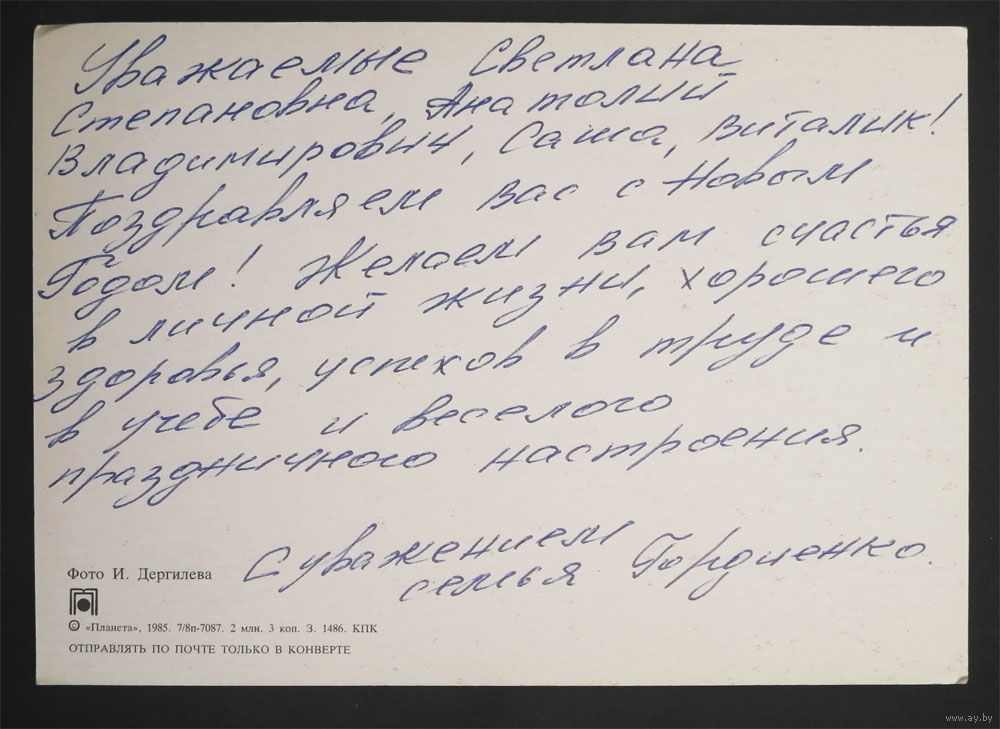 Уважаемые Светлана
Степановна, Анатолий
Владимирович, Саша, Виталик!
Поздравляем вас с Новым
Годом! Желаем вам счастья
в личной жизни, хорошего
здоровья, успехов в труде и
в учебе и веселого
праздничного настроения.
С уважением
семья Гордиенко.
Фото И. Дергилева
© «Планета», 1985. 7/8п-7087. 2 млн. 3 коп. З. 1486. КПК
ОТПРАВЛЯТЬ ПО ПОЧТЕ ТОЛЬКО В КОНВЕРТЕ
www.ay.by